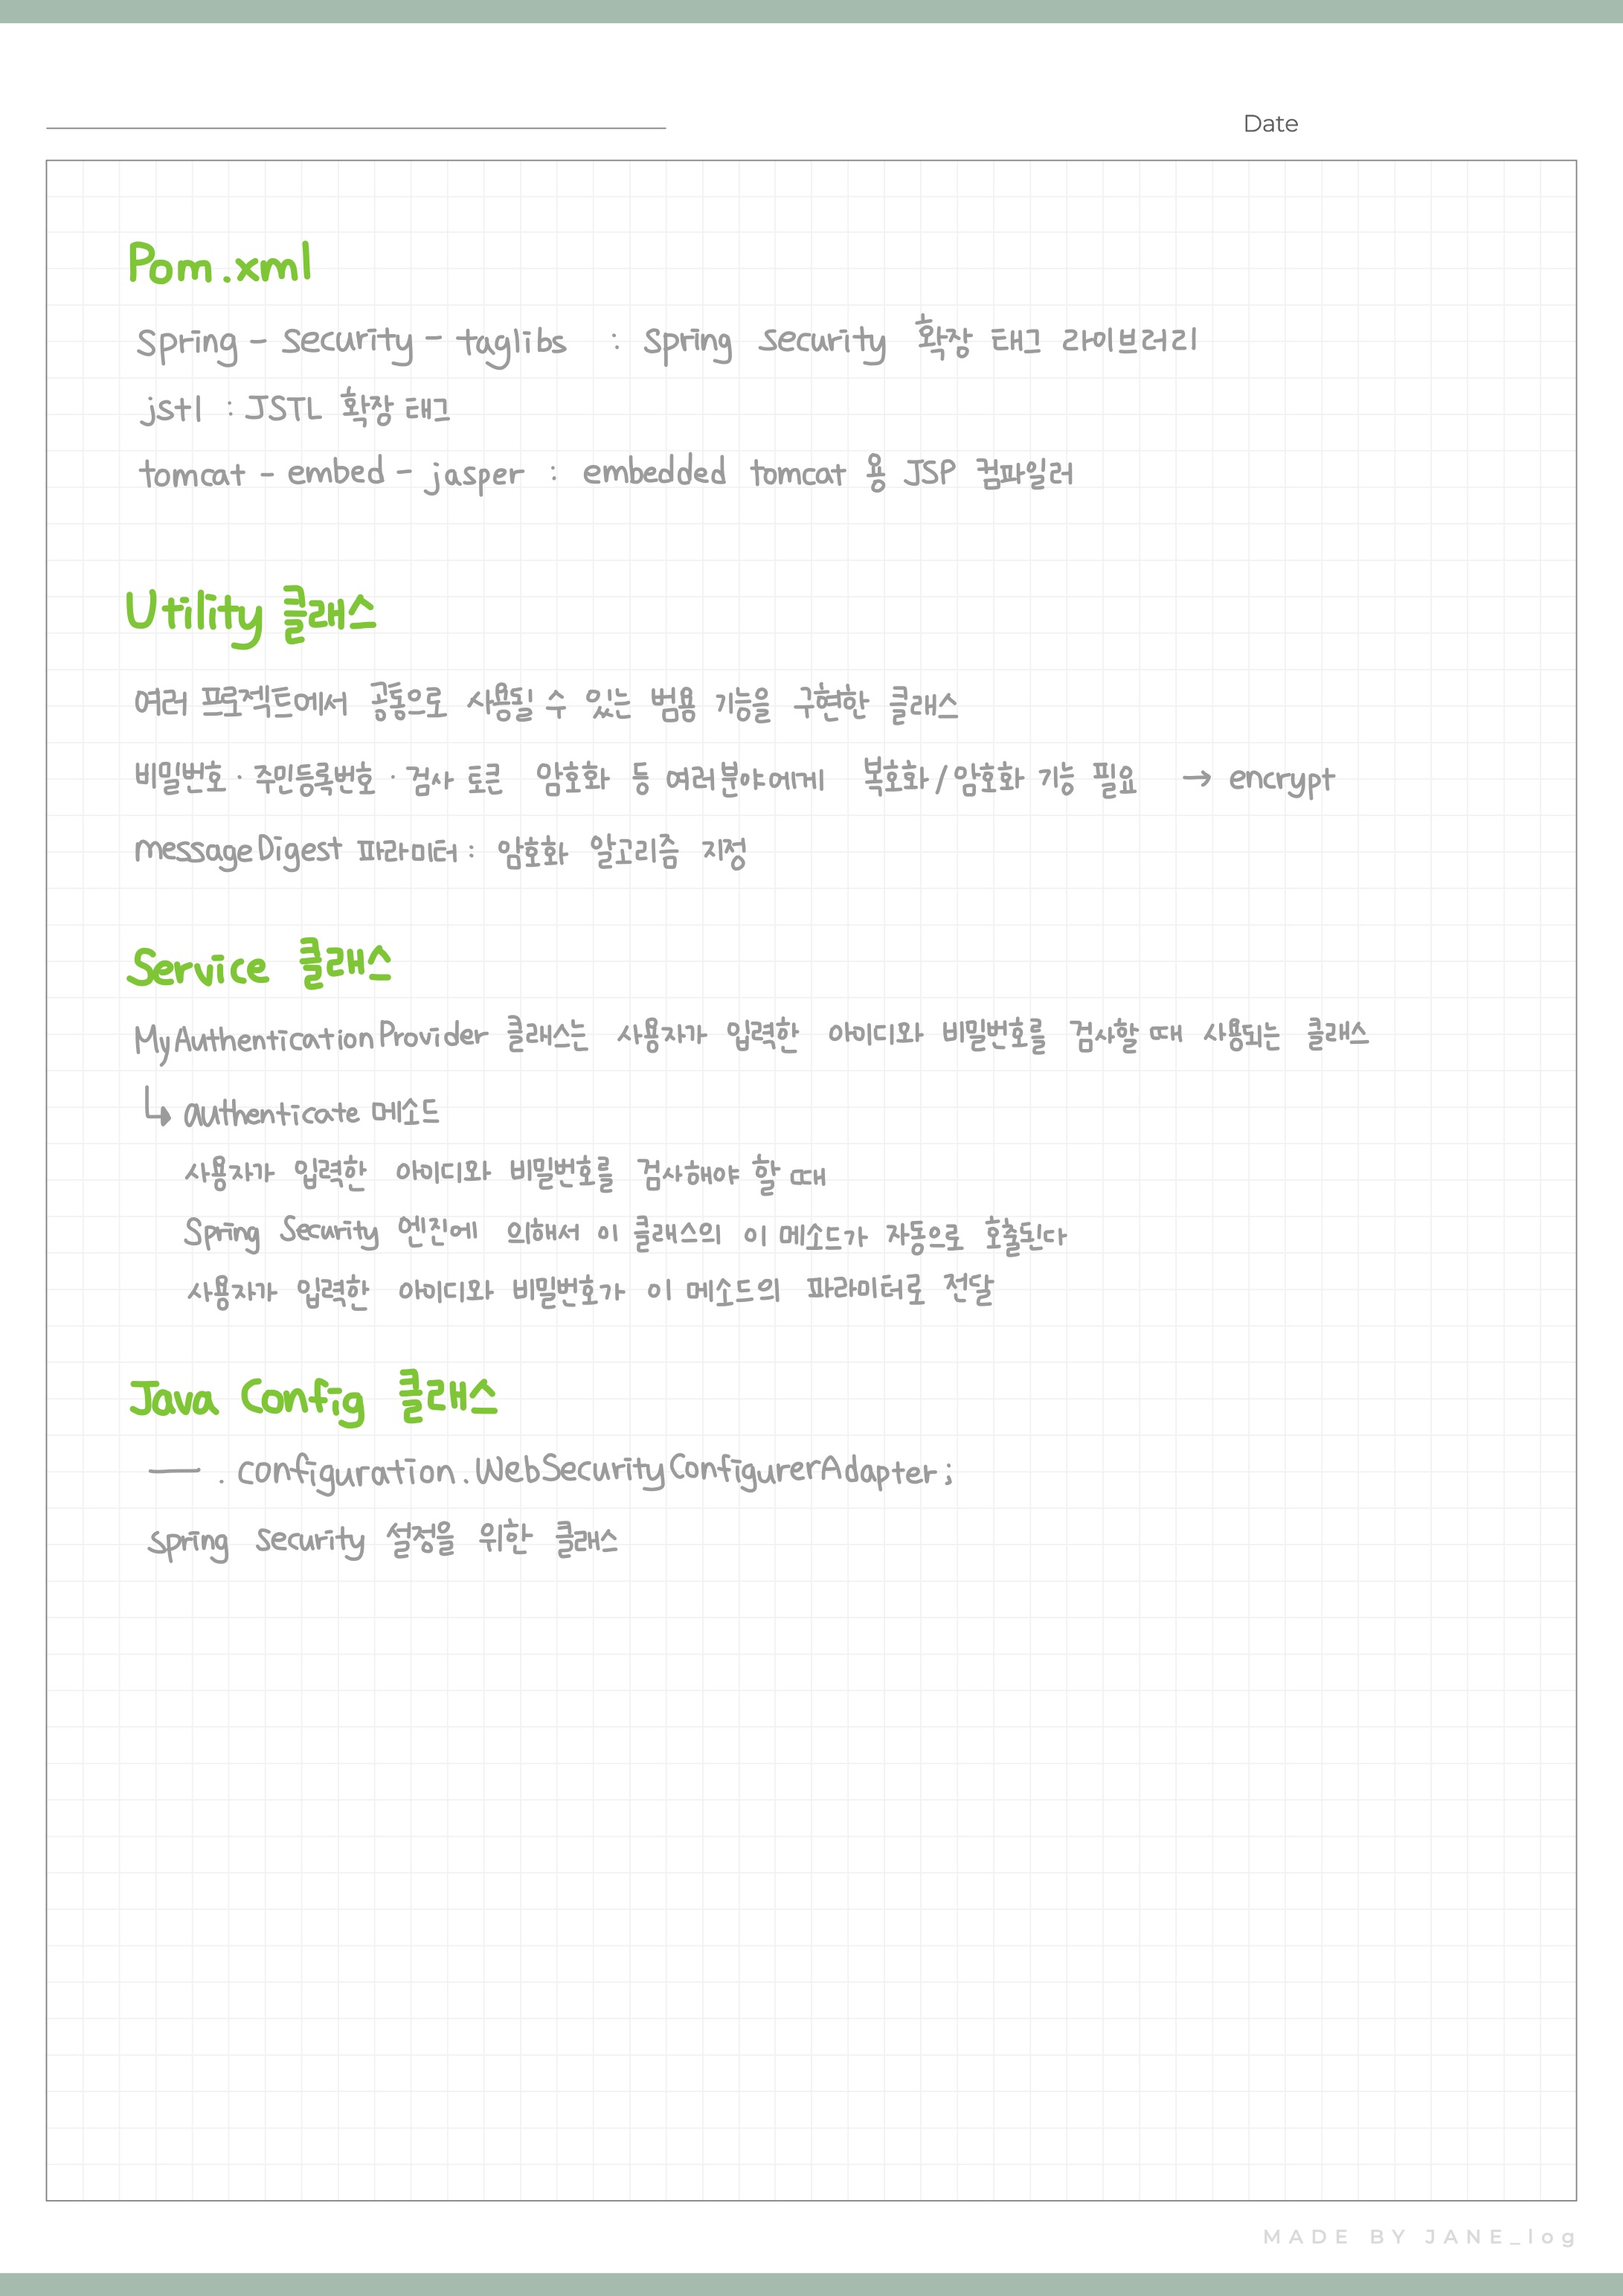 Date
Pom.xml
spring - security - taglibs : spring security 확장 태그 라이브러리
jstl : JSTL 확장 태그
tomcat - embed - jasper : embedded tomcat 용 JSP 컴파일러
Utility 클래스
여러 프로젝트에서 공통으로 사용될 수 있는 범용 기능을 구현한 클래스
비밀번호 · 주민등록번호 · 검사 토큰 암호화 등 여러분야에게 복호화/암호화 기능 필요 → encrypt
messageDigest 파라미터 : 암호화 알고리즘 지정
Service 클래스
MyAuthenticationProvider 클래스는 사용자가 입력한 아이디와 비밀번호를 검사할 때 사용되는 클래스
↳ authenticate 메소드
사용자가 입력한 아이디와 비밀번호를 검사해야 할 때
Spring Security 엔진에 의해서 이 클래스의 이 메소드가 자동으로 호출된다
사용자가 입력한 아이디와 비밀번호가 이 메소드의 파라미터로 전달
Java Config 클래스
— . configuration.WebSecurityConfigurerAdapter;
spring security 설정을 위한 클래스
MADE BY JANE_log